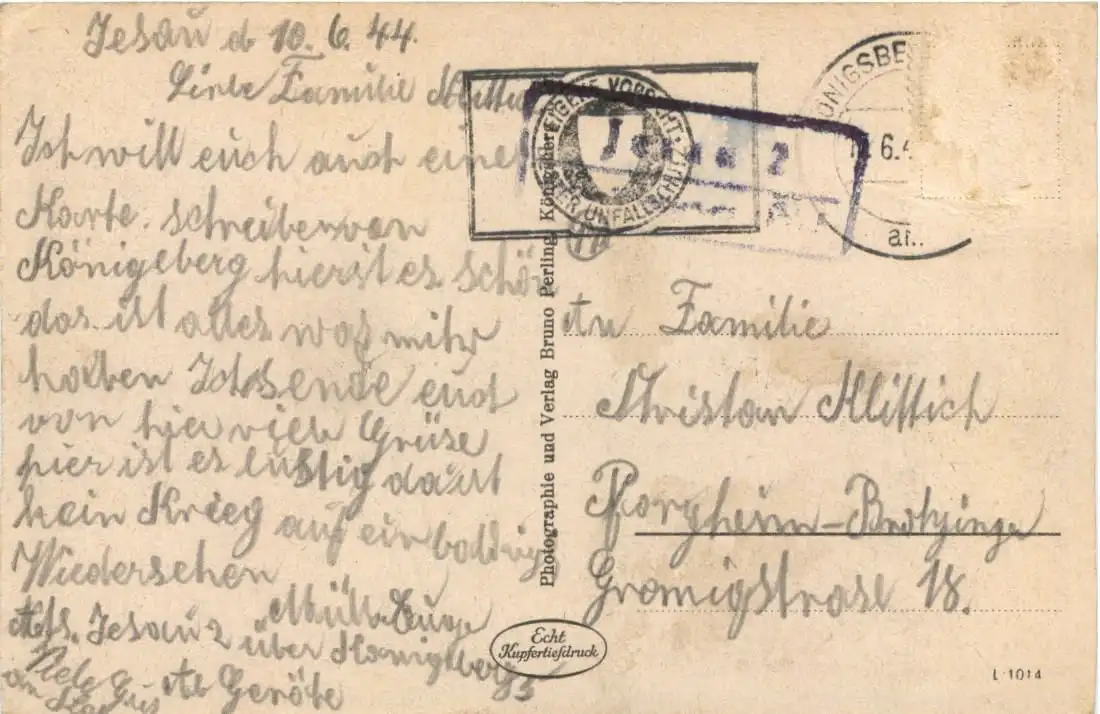 Jesau d 10. 6. 44.
Liebe Familie
Ich will euch auch eine
Karte schreiben von
Königsberg hier ist es schön
das ist alles was mihr
haben Ich sende euch
von hier viele Grüse
hier ist es lustig da ist
kein Krieg auf ein baldiges
Wiedersehen
Jesau 2 über Königsberg
Viele
EIGENE VORSICHT
UNFALLSCHUTZ
Jesau 2
KÖNIGSBE
6.4
Photographie und Verlag Bruno Perling, Königsberg
An Familie
Kristan Mittich
Pforzheim-Brötzingen
Gromigstrase 18.
Echt
Kupfertiefdruck
L 1014